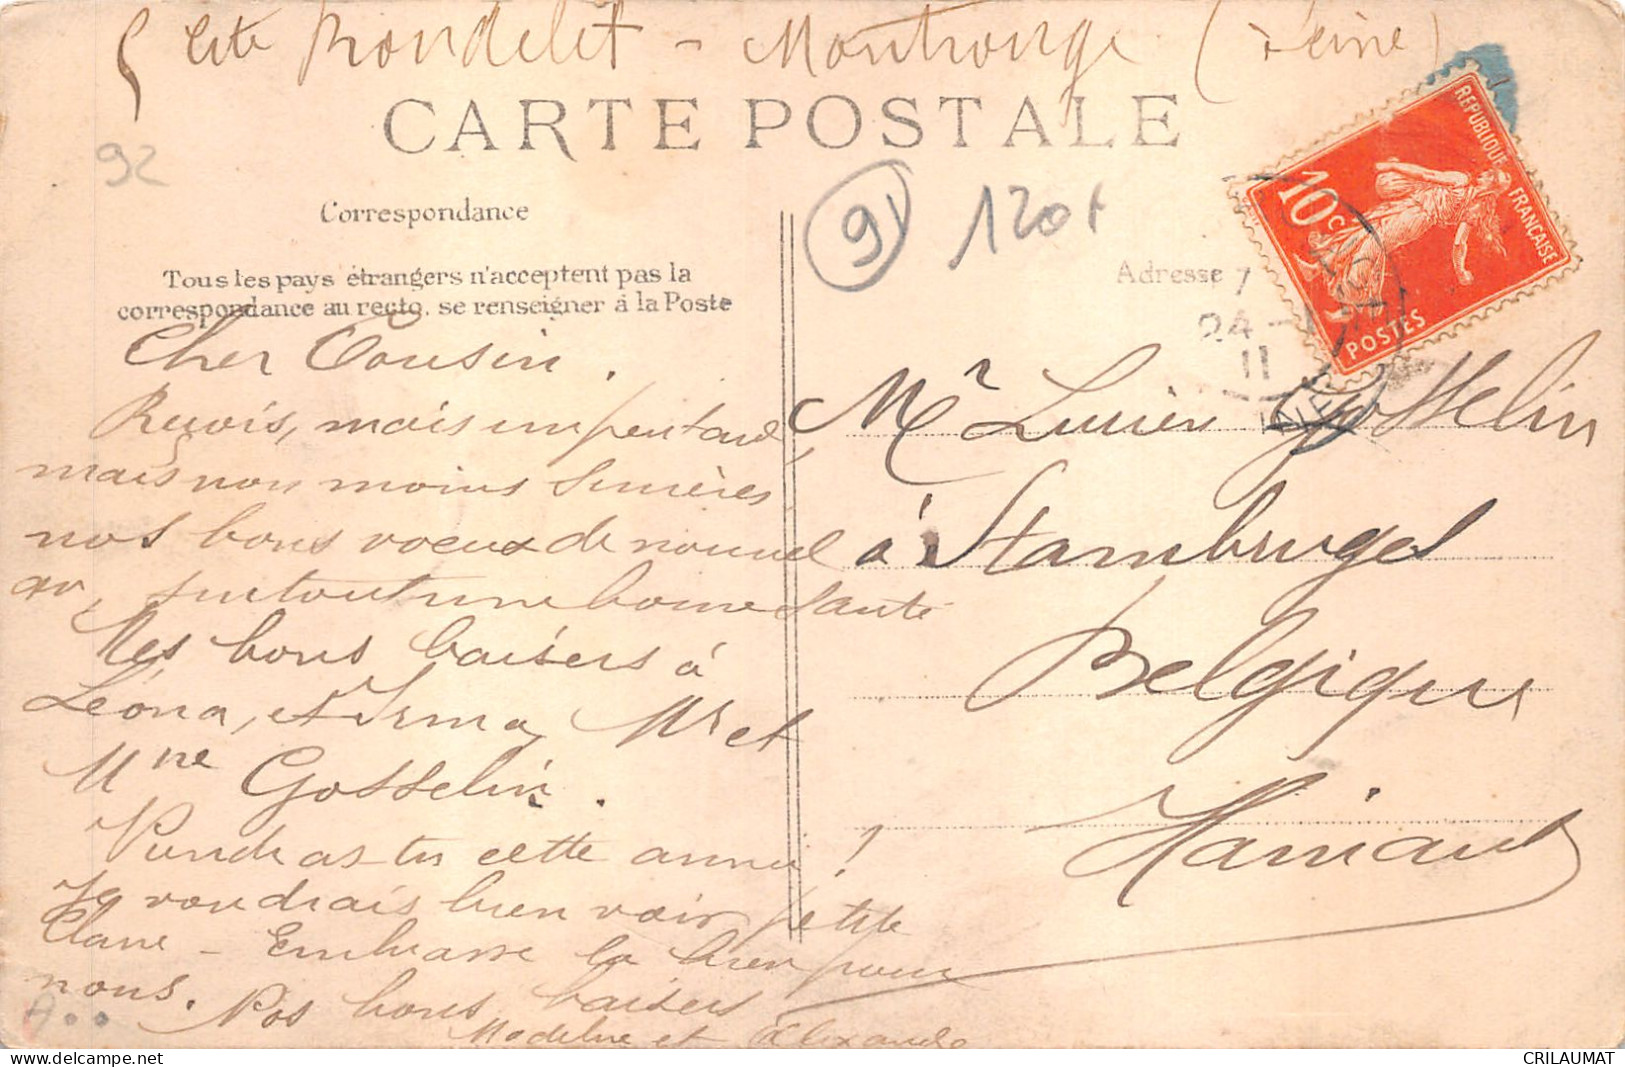 5 Cité Rondelet - Montrouge (Seine)
CARTE POSTALE
92
Correspondance
9
120f
Tous les pays étrangers n'acceptent pas la
correspondance au recto, se renseigner à la Poste
Adresse
7
24 - 1
11
REPUBLIQUE FRANÇAISE
10c
POSTES
Cher Cousin.
Reçois, mais un peu tard,
mais non moins sincères
nos bons voeux de nouvel
an, surtout une bonne santé
Mes bons baisers à
Léona, et Irma, Mr et
Mme Gosselin.
Viendras-tu cette année !
Je voudrais bien voir petite
Claire - Embrasse la bien pour
nous. Nos bons baisers
Madeleine et Alexandre
Mr Lucien Gosselin
à Stambruges
Belgique
Hainaut
CRILAUMAT